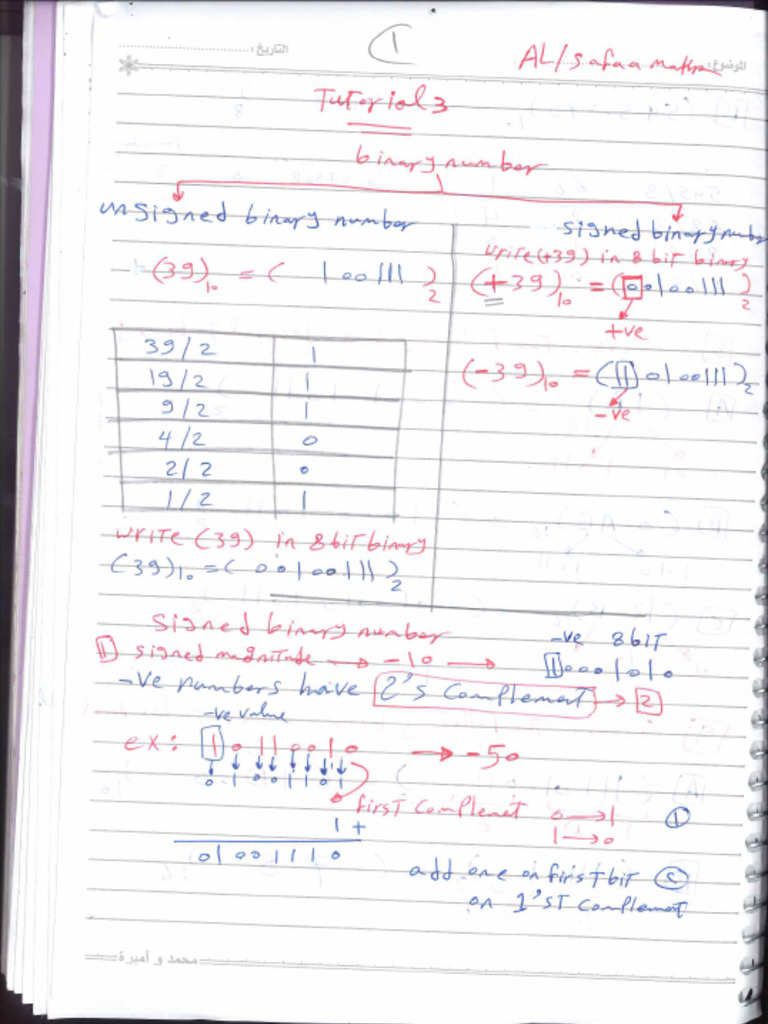 التاريخ:
1
الموضوع:
AL/safaa
Tutorial 3
binary number
unsigned binary number
(39)10 = ( 100111 )2
39/2 1
19/2 1
9/2 1
4/2 0
2/2 0
1/2 1
write (39) in 8 bit binary
(39)10 = ( 00100111 )2
signed binary number
write (+39) in 8 bit binary
(+39)10 = (00100111)2
+ve
(-39)10 = (10100111)2
-ve
signed binary number
-ve 8 bit
1 signed magnitude → -10 → 10001010
-ve numbers have 2's complement → 2
-ve value
ex: 10110010 → -50
01001101
first complemet 0 → 1 1
1 → 0
1 +
01001110
add one on first bit 2
on 1'st complemat
محمد و أميرة